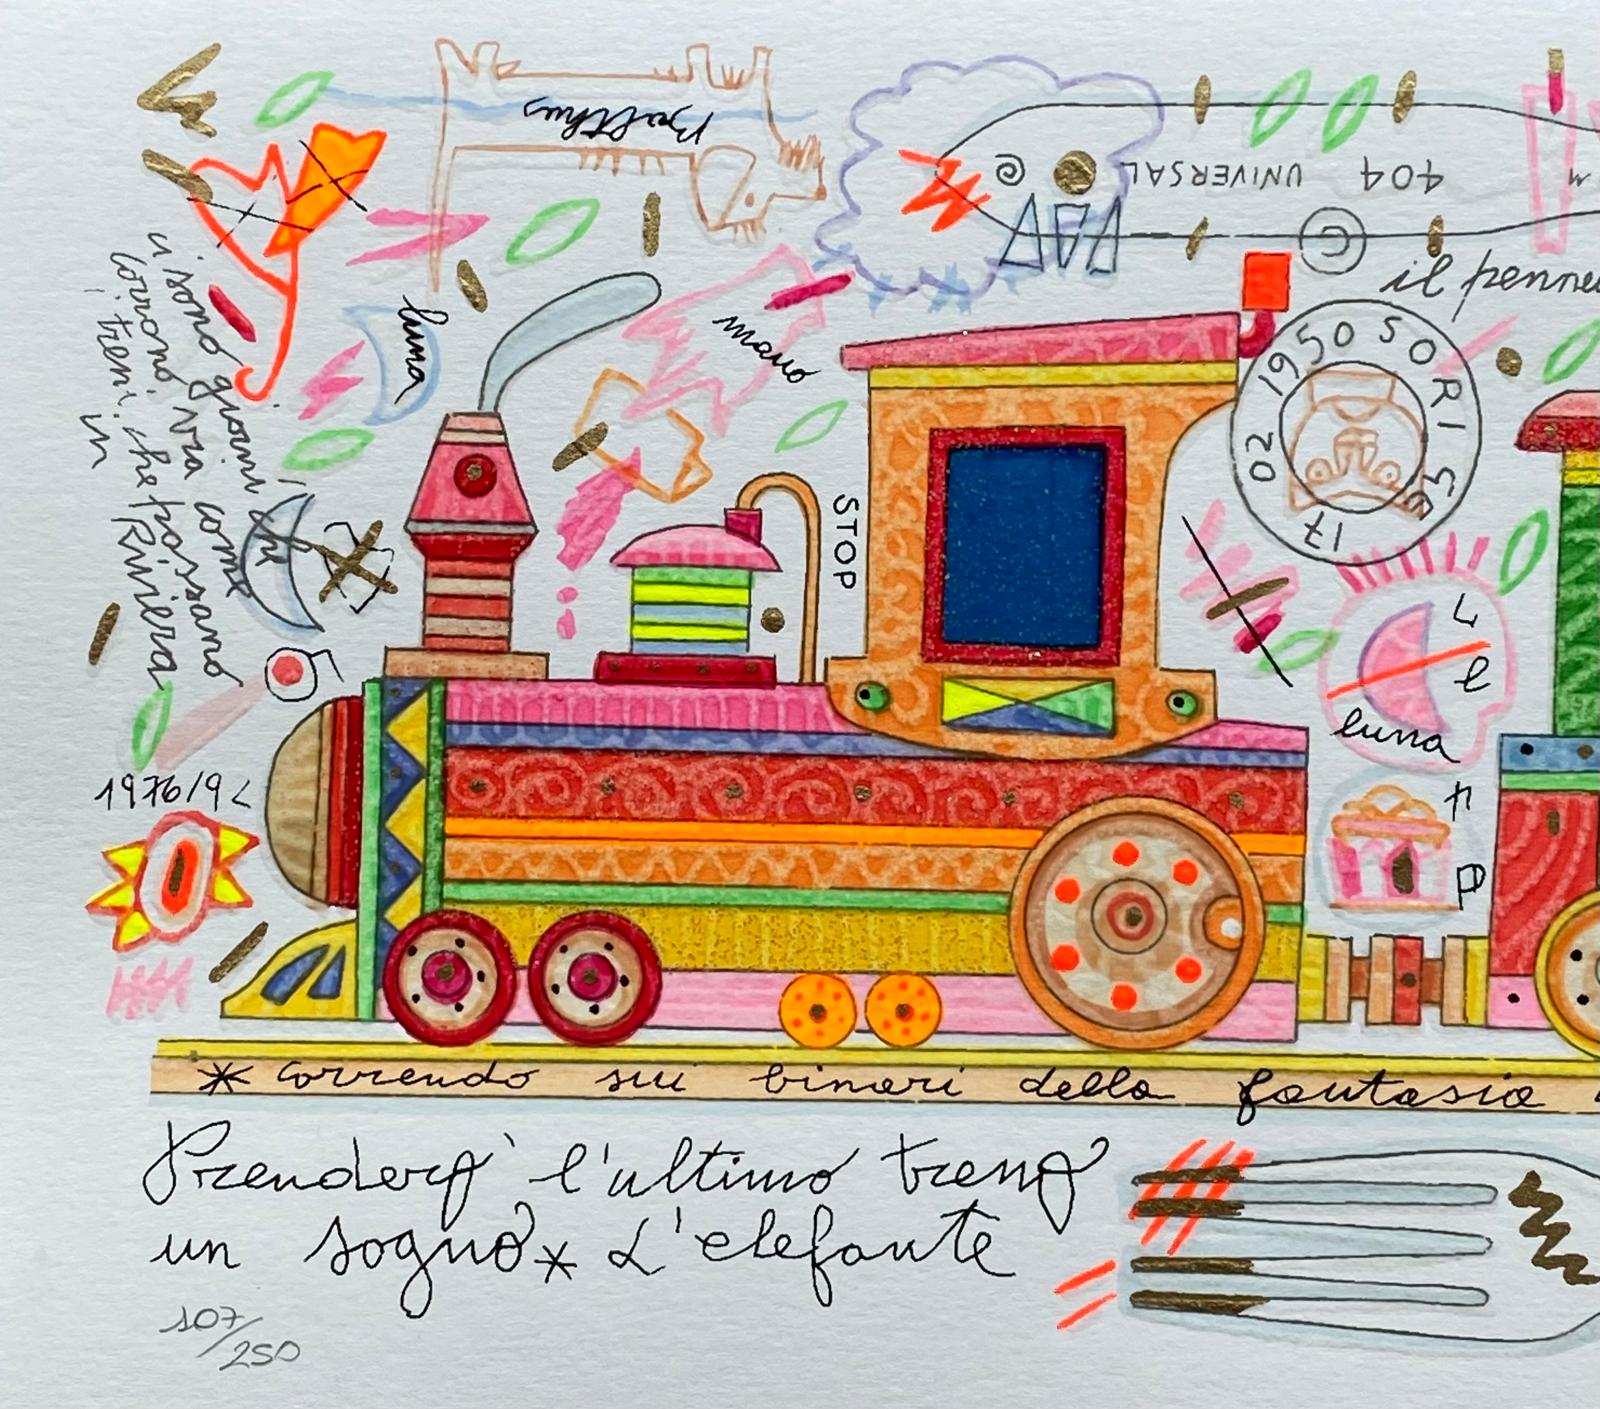 Balthus
UNIVERSAL 404
il penne
luna
mano
02 1950 SORI
17
STOP
vi sono giorni che
corrono via come
i treni che passano
in Riviera
L
e
luna
P
* correndo sui binari della fantasia
Prenderò l'ultimo treno
un sogno* L'elefante
107/250